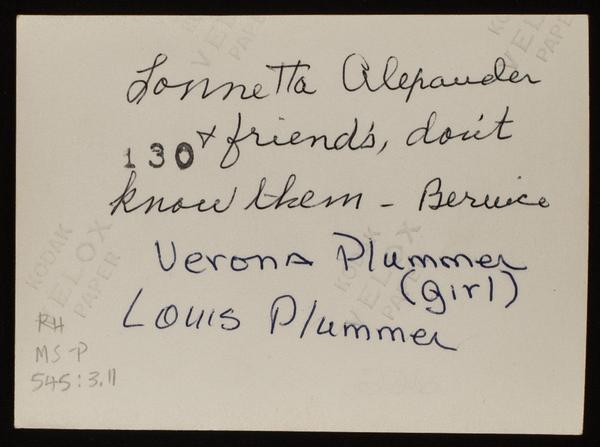 KODAK
VELOX
PAPER
KODAK
VELOX
PAPER
Lonnetta Alexander
130 + friends, don't
know them - Bernice
Verona Plummer
(girl)
Louis Plummer
KODAK
VELOX
PAPER
KODAK
VELOX
PAPER
RH
MS-P
545:3.11